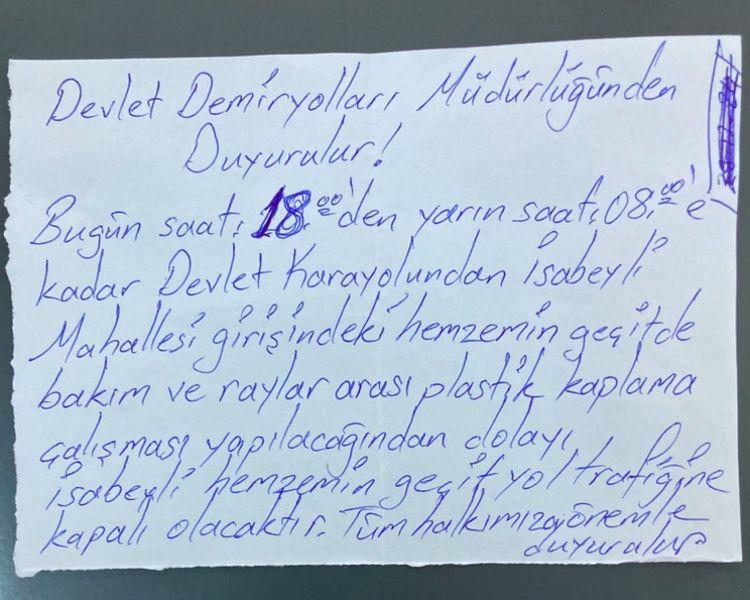 Devlet Demiryolları Müdürlüğünden
Duyurulur!
Bugün saat: 18.00'den yarın saat: 08.00'e
kadar Devlet Karayolundan İsabeyli
Mahallesi girişindeki hemzemin geçitde
bakım ve raylar arası plastik kaplama
çalışması yapılacağından dolayı
İsabeyli hemzemin geçit yol trafiğine
kapalı olacaktır. Tüm halkımıza önemle
duyurulur